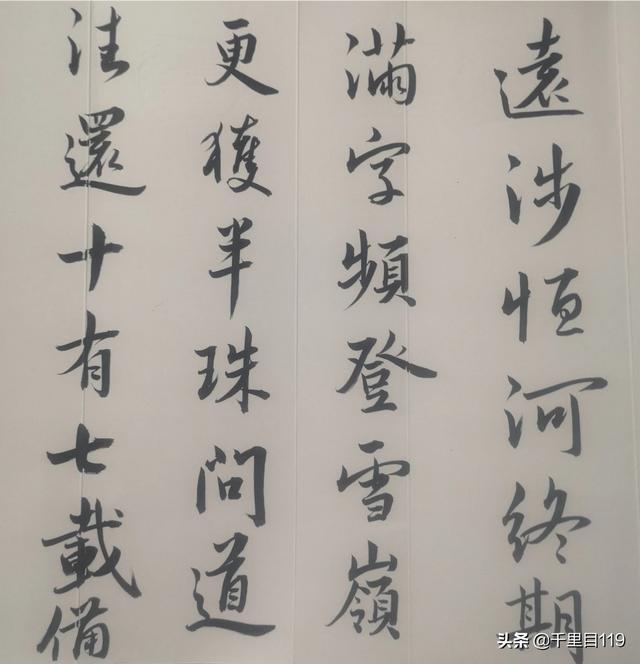 遠涉恒河終期
滿字頻登雪嶺
更獲半珠問道
法還十有七載備
头条 @千里目119